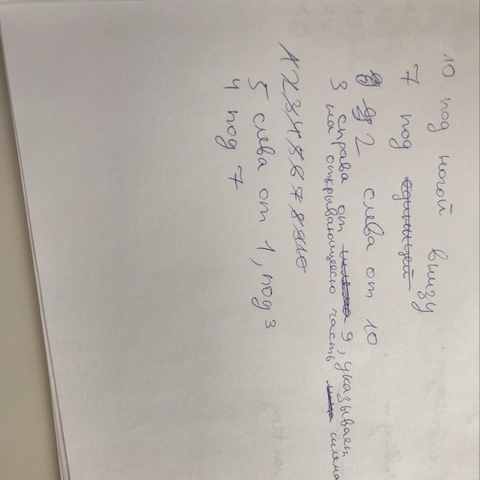 10 под ногой внизу
7 под единицей
2 слева от 10
3 справа от 9, указывает
на открывающуюся часть шлема
1 2 3 4 5 6 7 8 9 10
5 слева от 1, под 3
4 под 7